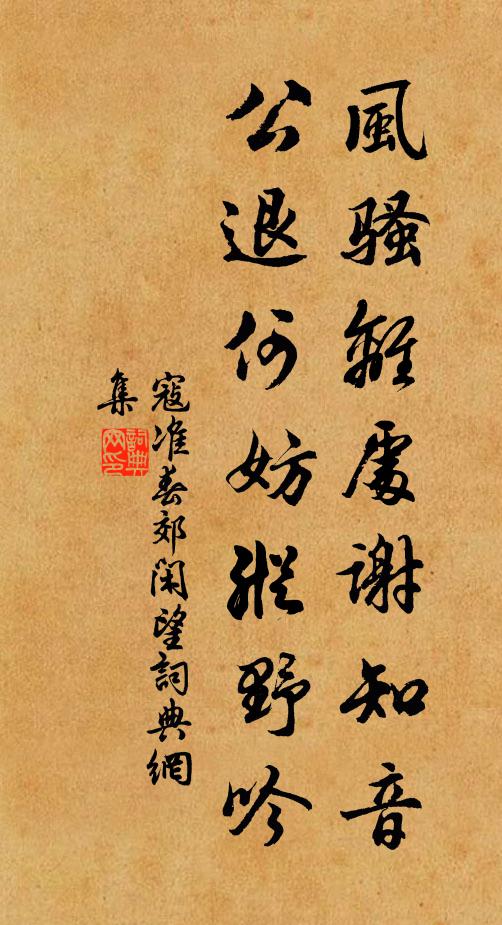 風騷難處謝知音
公退何妨縱野吟
寇准春郊閑望詞典網
集
詞典
网印